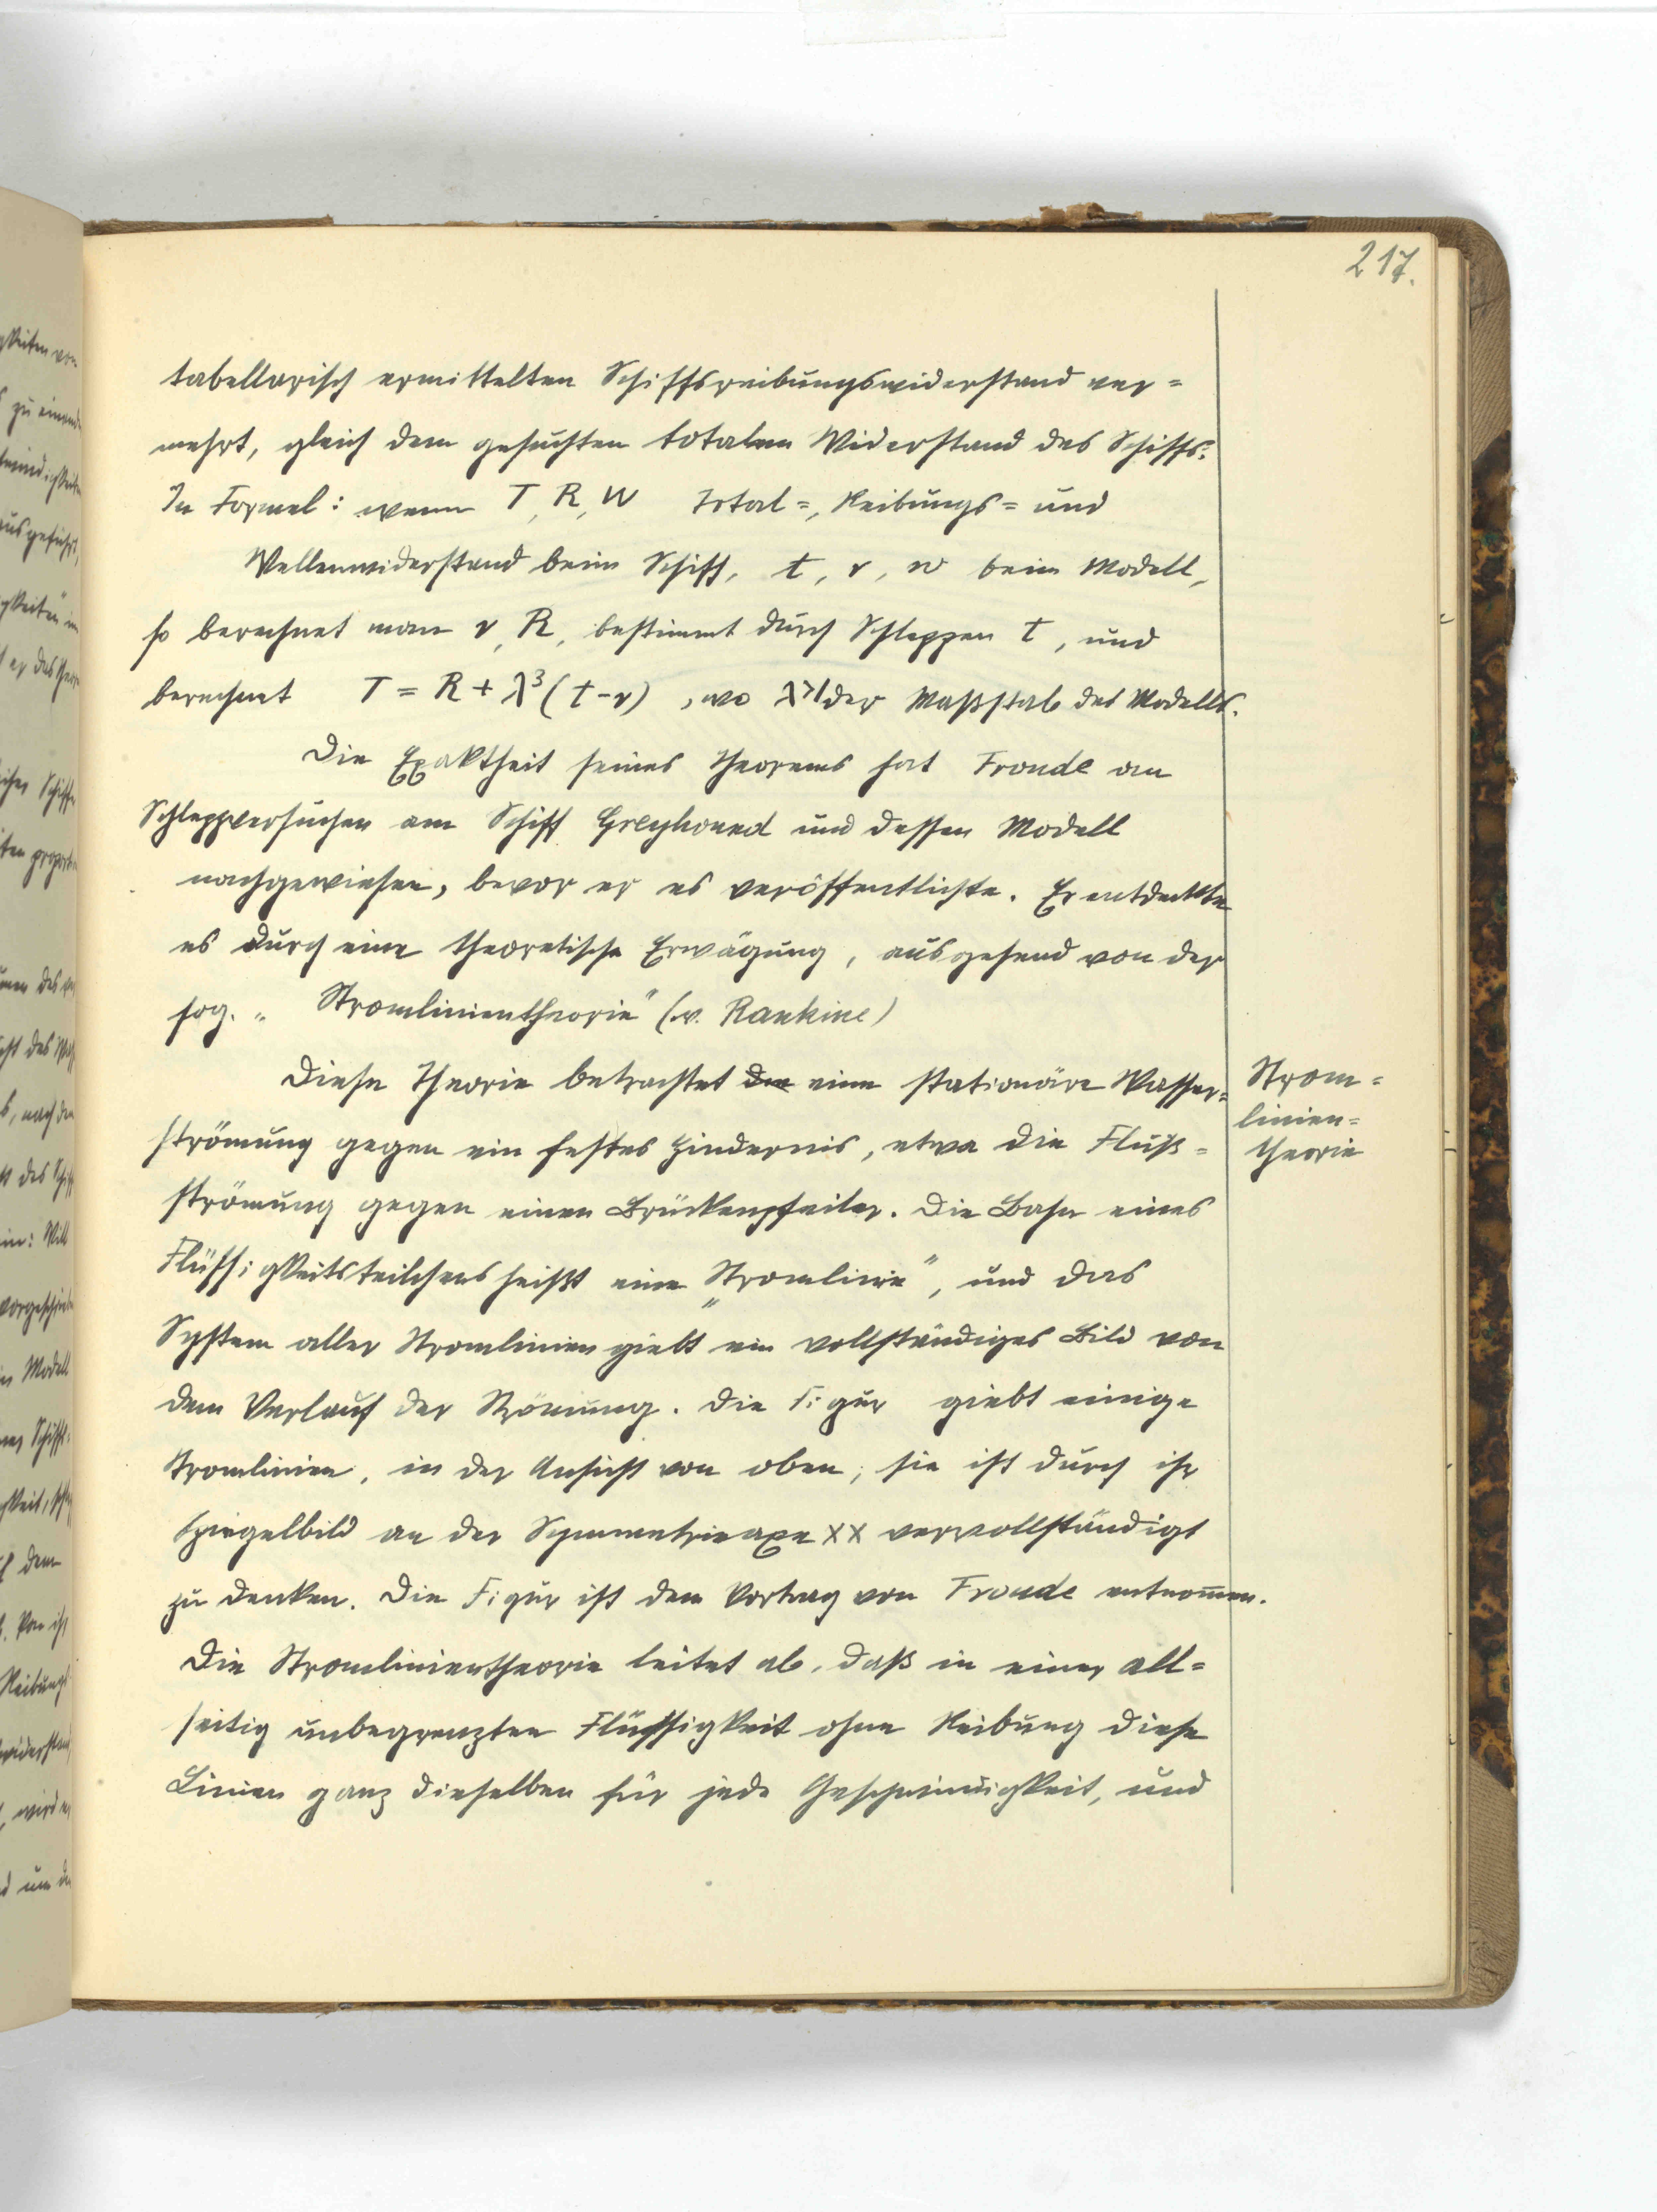 217.
tabellarisch ermittelten Schiffsreibungswiderstand ver=
mehrt, gleich dem gesuchten totalen Widerstand des Schiffs.
In Formel: wenn T, R, W Total=, Reibungs= und
Wellenwiderstand beim Schiff, t, r, w beim Modell,
so berechnet man r, R, bestimmt durch Schleppen t, und
berechnet T = R + λ³ (t-r) , wo λ>1 der Maßstab des Modells.
Die Exaktheit seines Theorems hat Froude an
Schleppversuchen am Schiff Greyhound und dessen Modell
nachgewiesen, bevor er es veröffentlichte. Er entdeckte
es durch eine theoretische Erwägung, ausgehend von der
sog. „Stromlinientheorie" (v. Rankine)
Diese Theorie betrachtet die eine stationäre Wasser=
strömung gegen ein festes Hindernis, etwa die Fluß=
strömung gegen einen Brückenpfeiler. Die Bahn eines
Flüssigkeitsteilchens heißt eine „Stromlinie", und das
System aller Stromlinien giebt ein vollständiges Bild von
dem Verlauf der Strömung. Die Figur giebt einige
Stromlinien, in der Ansicht von oben; sie ist durch ihr
Spiegelbild an der Symmetrieaxe XX vervollständigt
zu denken. Die Figur ist dem Vortrag von Froude entnom̅en.
Die Stromlinientheorie leitet ab, daß in einer all=
seitig unbegrenzten Flüssigkeit ohne Reibung diese
Linien ganz dieselben für jede Geschwindigkeit, und
Strom=
linien=
theorie